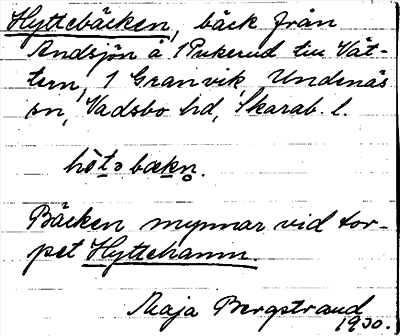 Hyttebäcken, bäck från
Andsjön å 1 Pukerud till Vät-
tern, 1 Granvik, Undenäs
sn, Vadsbo hd, Skarab. l.
bäkn.
Bäcken mynnar vid tor-
pet Hyttehamn.
Maja Bergstrand
1930.